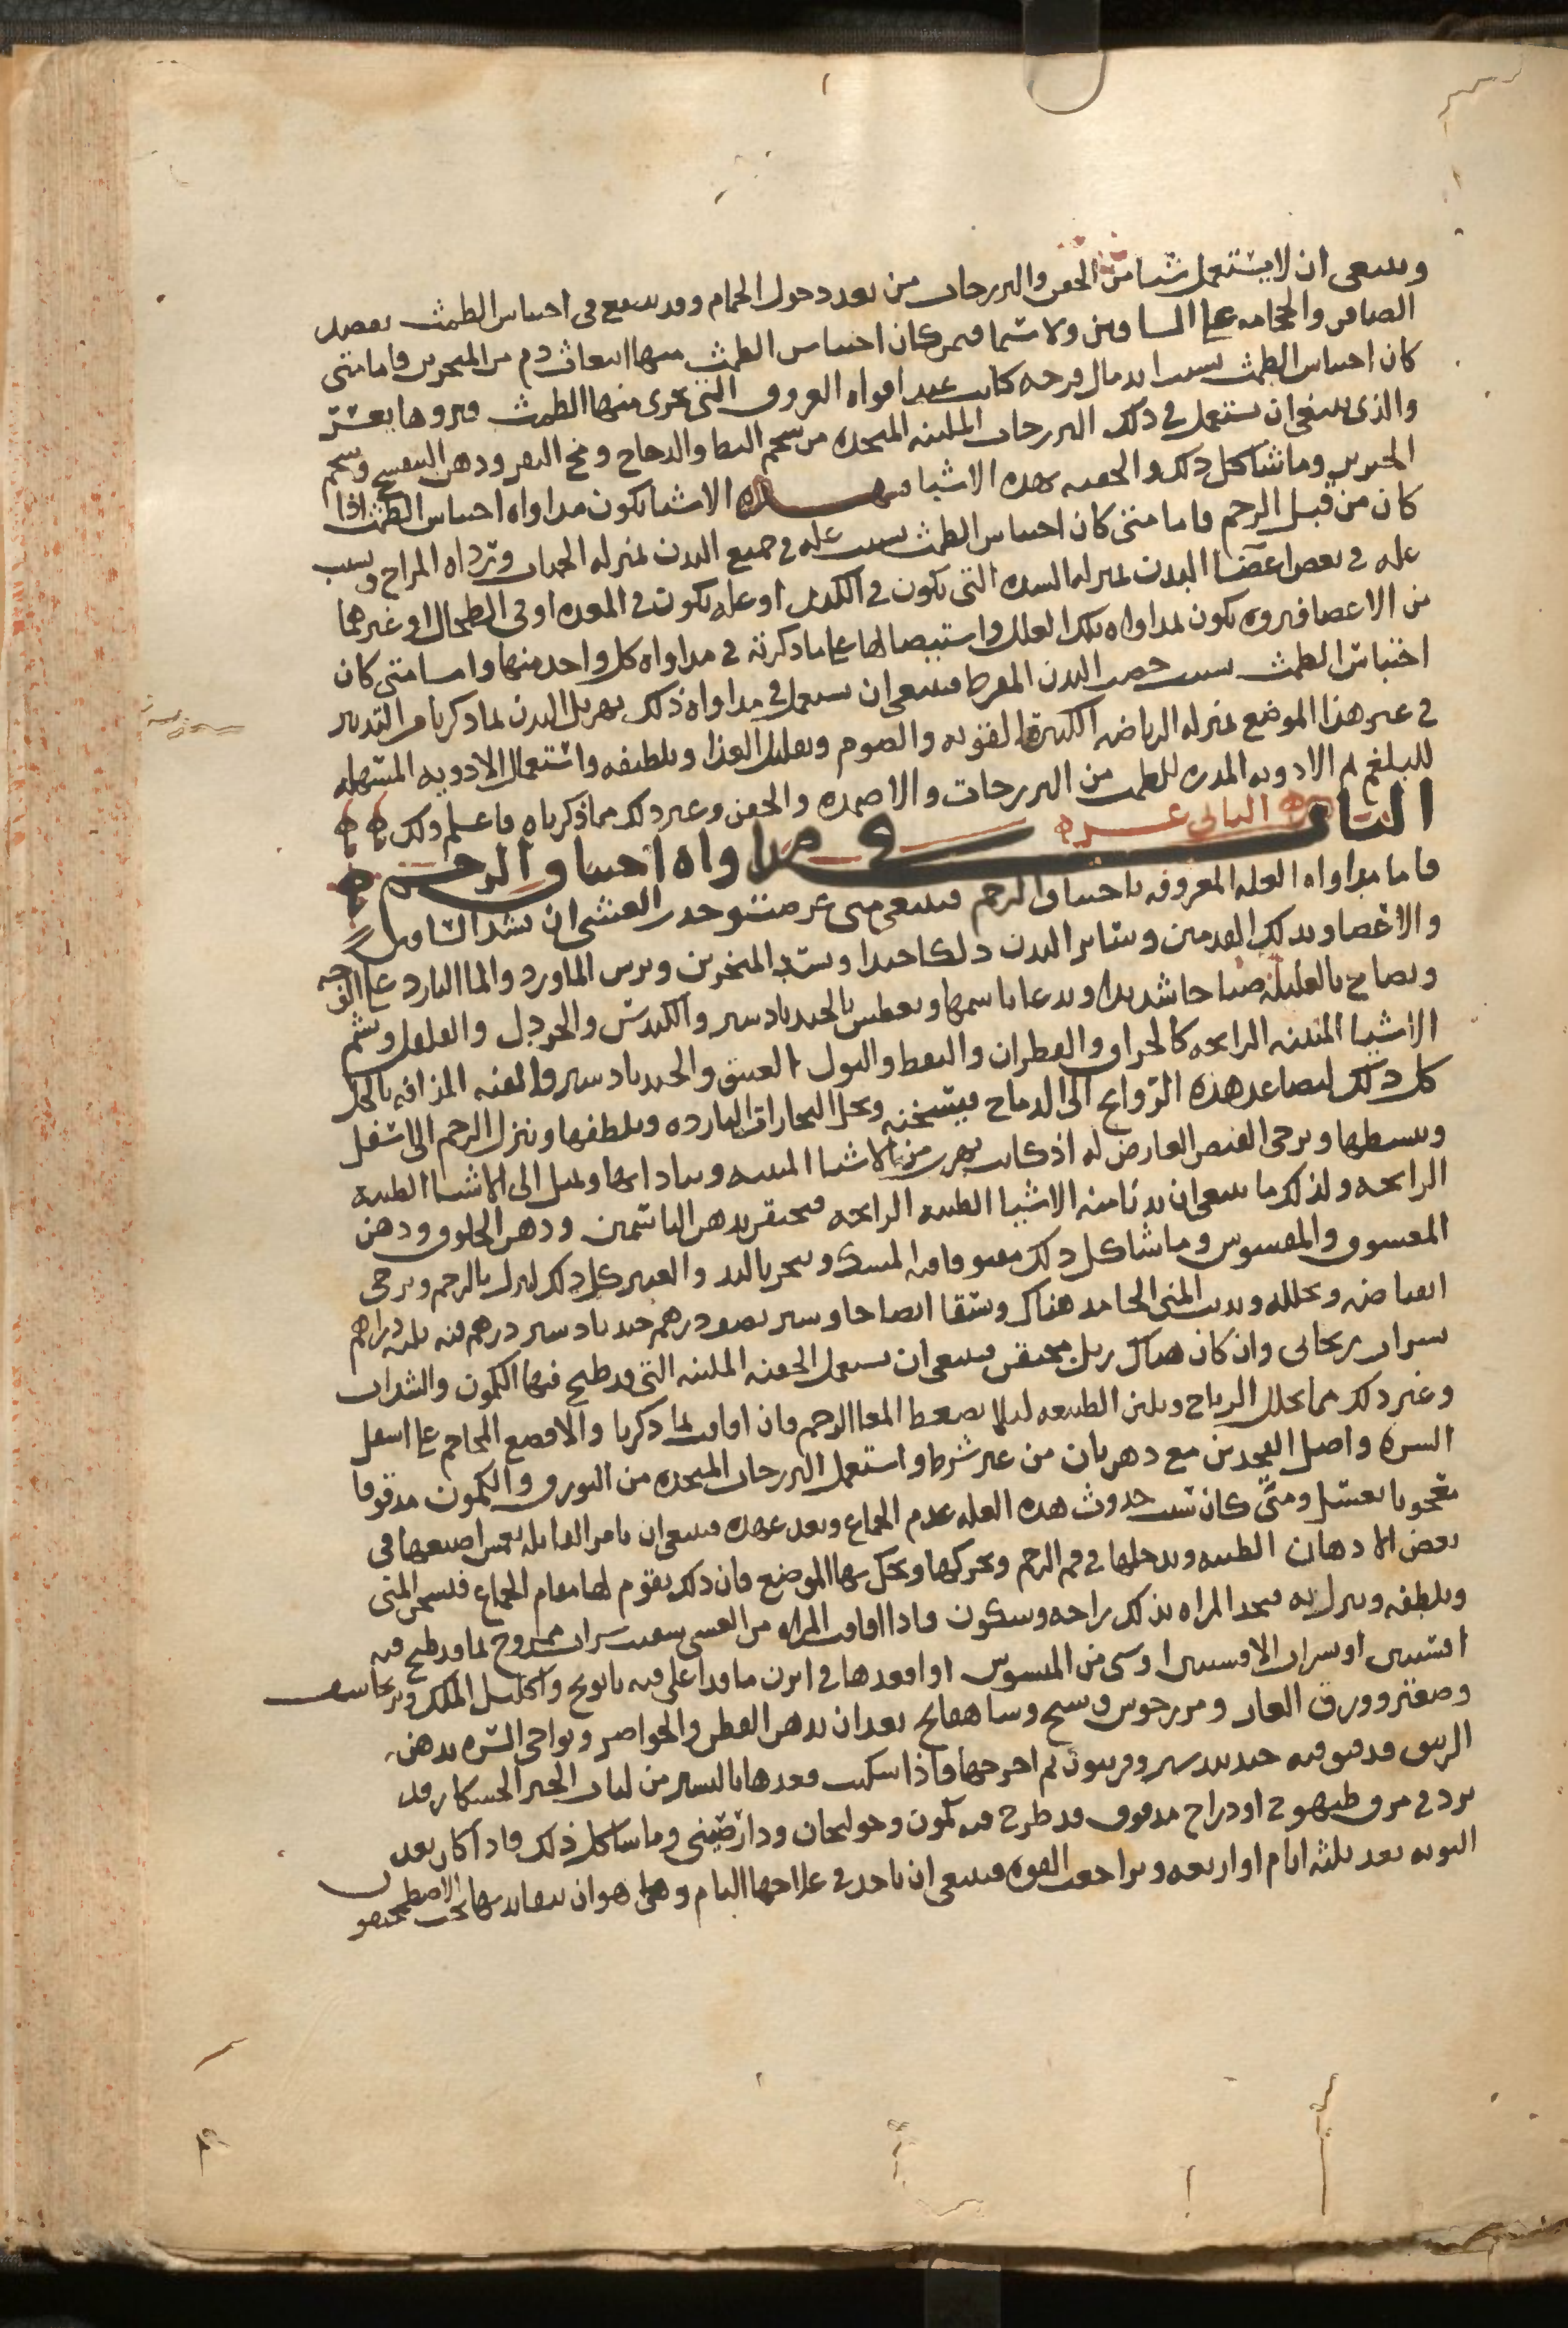 وينبغي ان لا يستعمل شيا من الحقن والفرزجات من بعد دخول الحمام وقد ينتفع في احتباس الطمث بفصد
الصافن والحجامه على الساقين ولا سيما فيمن كان احتباس الطمث منها انبعاث دم من المنخرين فاما متى
كان احتباس الطمث بسبب اندمال قرحه كانت عند افواه العروق التي يجري منها الطمث فبروها يعسر
والذي ينبغي ان يستعمل في ذلك الفرزجات الملينه المتخذه من شحم البط والدجاج ومخ البقر ودهن البنفسج وشحم
الخنزير وما شاكل ذلك والحقنه بهذه الاشيا فبهذه الاشيا يكون مداواه احتباس الطمث اذا
كان من قبل الرحم فاما متى كان احتباس الطمث بسبب عله في جميع البدن بمنزله الحميات وترداه المزاج وبسبب
عله في بعض اعضا البدن بمنزله السده التي يكون في الكبد او عله يكون في المعده او في الطحال او غيرهما
من الاعضا فبروه يكون بمداواه تلك العلل واستيصالها على ما ذكرته في مداواه كل واحد منها واما متى كان
احتباس الطمث بسبب خصب البدن المفرط فينبغي ان يستعمل في مداواه ذلك تهزيل البدن بما ذكرنا من التدبير
في غير هذا الموضع بمنزله الرياضه الكثيره القويه والصوم وتقليل الغذا وتلطيفه واستعمال الادويه المسهله
للبلغم ثم الادويه المدره للطمث من الفرزجات والاضمده والحقن وغير ذلك مما ذكرناه فاعلم ذلك
الباب الثاني عشر في مداواه اختناق الرحم
فاما مداواه العله المعروفه باختناق الرحم فينبغي متى عرضت وحدث الغشي ان تشد الساقين
والاعضا وتدلك القدمين وسائر البدن دلكا جيدا وتسد المنخرين ويرس الماورد والما البارد على الوجه
ويصاح بالعليله صياحا شديدا ويدعا باسمها ويعطس بالجندبادستر والكندس والخردل والفلفل ويشم
الاشيا المنتنه الرايحه كالحراق والقطران والنفط والبول العتيق والجندبادستر والقنه المذافه بالخل
كل ذلك لتصاعد هذه الروايح الى الدماغ فيسخنه وتحل البخارات البارده ويلطفها وينزل الرحم الى اسفل
ويبسطها ويرخي التقبض العارض له اذ كانت تهرب من الاشيا المنتنه وتتاذا بها وتميل الى الاشيا الطيبه
الرايحه ولذلك ما ينبغي ان يدنا منه الاشيا الطيبه الرايحه فيحتقن بدهن الياسمين ودهن الخلوق ودهن
وما شاكل ذلك مفتوقا فيه المسك ويبخر بالند والعنبر كل ذلك لينزل بالرحم ويرخي
انقباضه ويحلله ويذيب المني الجامد هناك ويسقا ايضا جاوشير نصف درهم جندبادستر درهم قنه ثلثه دراهم
بشراب ريحاني وان كان هناك زبل محتقن فينبغي ان يستعمل الحقنه الملينه التي قد طبخ فيها الكمون والشذاب
وغير ذلك مما يحلل الرياح ويلين الطبيعه ليلا يضغط المعا الرحم فان افاقت بما ذكرنا والا فضع المحاجم على اسفل
السره واصل الفخذين مع دهربان من غير شرط واستعمل الفرزجات المتخذه من البورق والكمون مدقوقا
معجونا بعسل ومتى كان سبب حدوث هذه العله عدم الجماع وبعد عهده فينبغي ان يامر القابله تغمس اصبعها في
بعض الادهان الطيبه وتدخلها في فم الرحم وتحركها وتحك بها الموضع فان ذلك يقوم لها مقام الجماع فيسخن المني
ويلطفه وينزل به فتجد المراه بذلك راحه وسكون فاذا افاقت المراه من الغشي سقيت شراب ممزوج بما قد طبخ فيه
افسنتين او شراب الافسنتين او شي من الميسوس او اقعدها في ابزن ما قد اغلي فيه بابونج واكليل الملك وبرنجاسف
وصعتر وورق الغار ومرزجوش وشيح وساهفايج بعد ان يدهن القطن والخواصر ونواحي السره بدهن
الزنبق قد فتق فيه جندبيدستر وفربيون ثم اخرجها فاذا سكنت فغذها باليسير من لباب الخبز الخشكار قد
ثرد في مرق طيهوج او دراج مدقوق قد طرح فيه كمون وخولنجان ودارصيني وما شاكل ذلك فاذا كان بعد
النوبه بعد ثلثه ايام او اربعه وتراجعت القوه فينبغي ان ياخذ في علاجها التام وهو ان